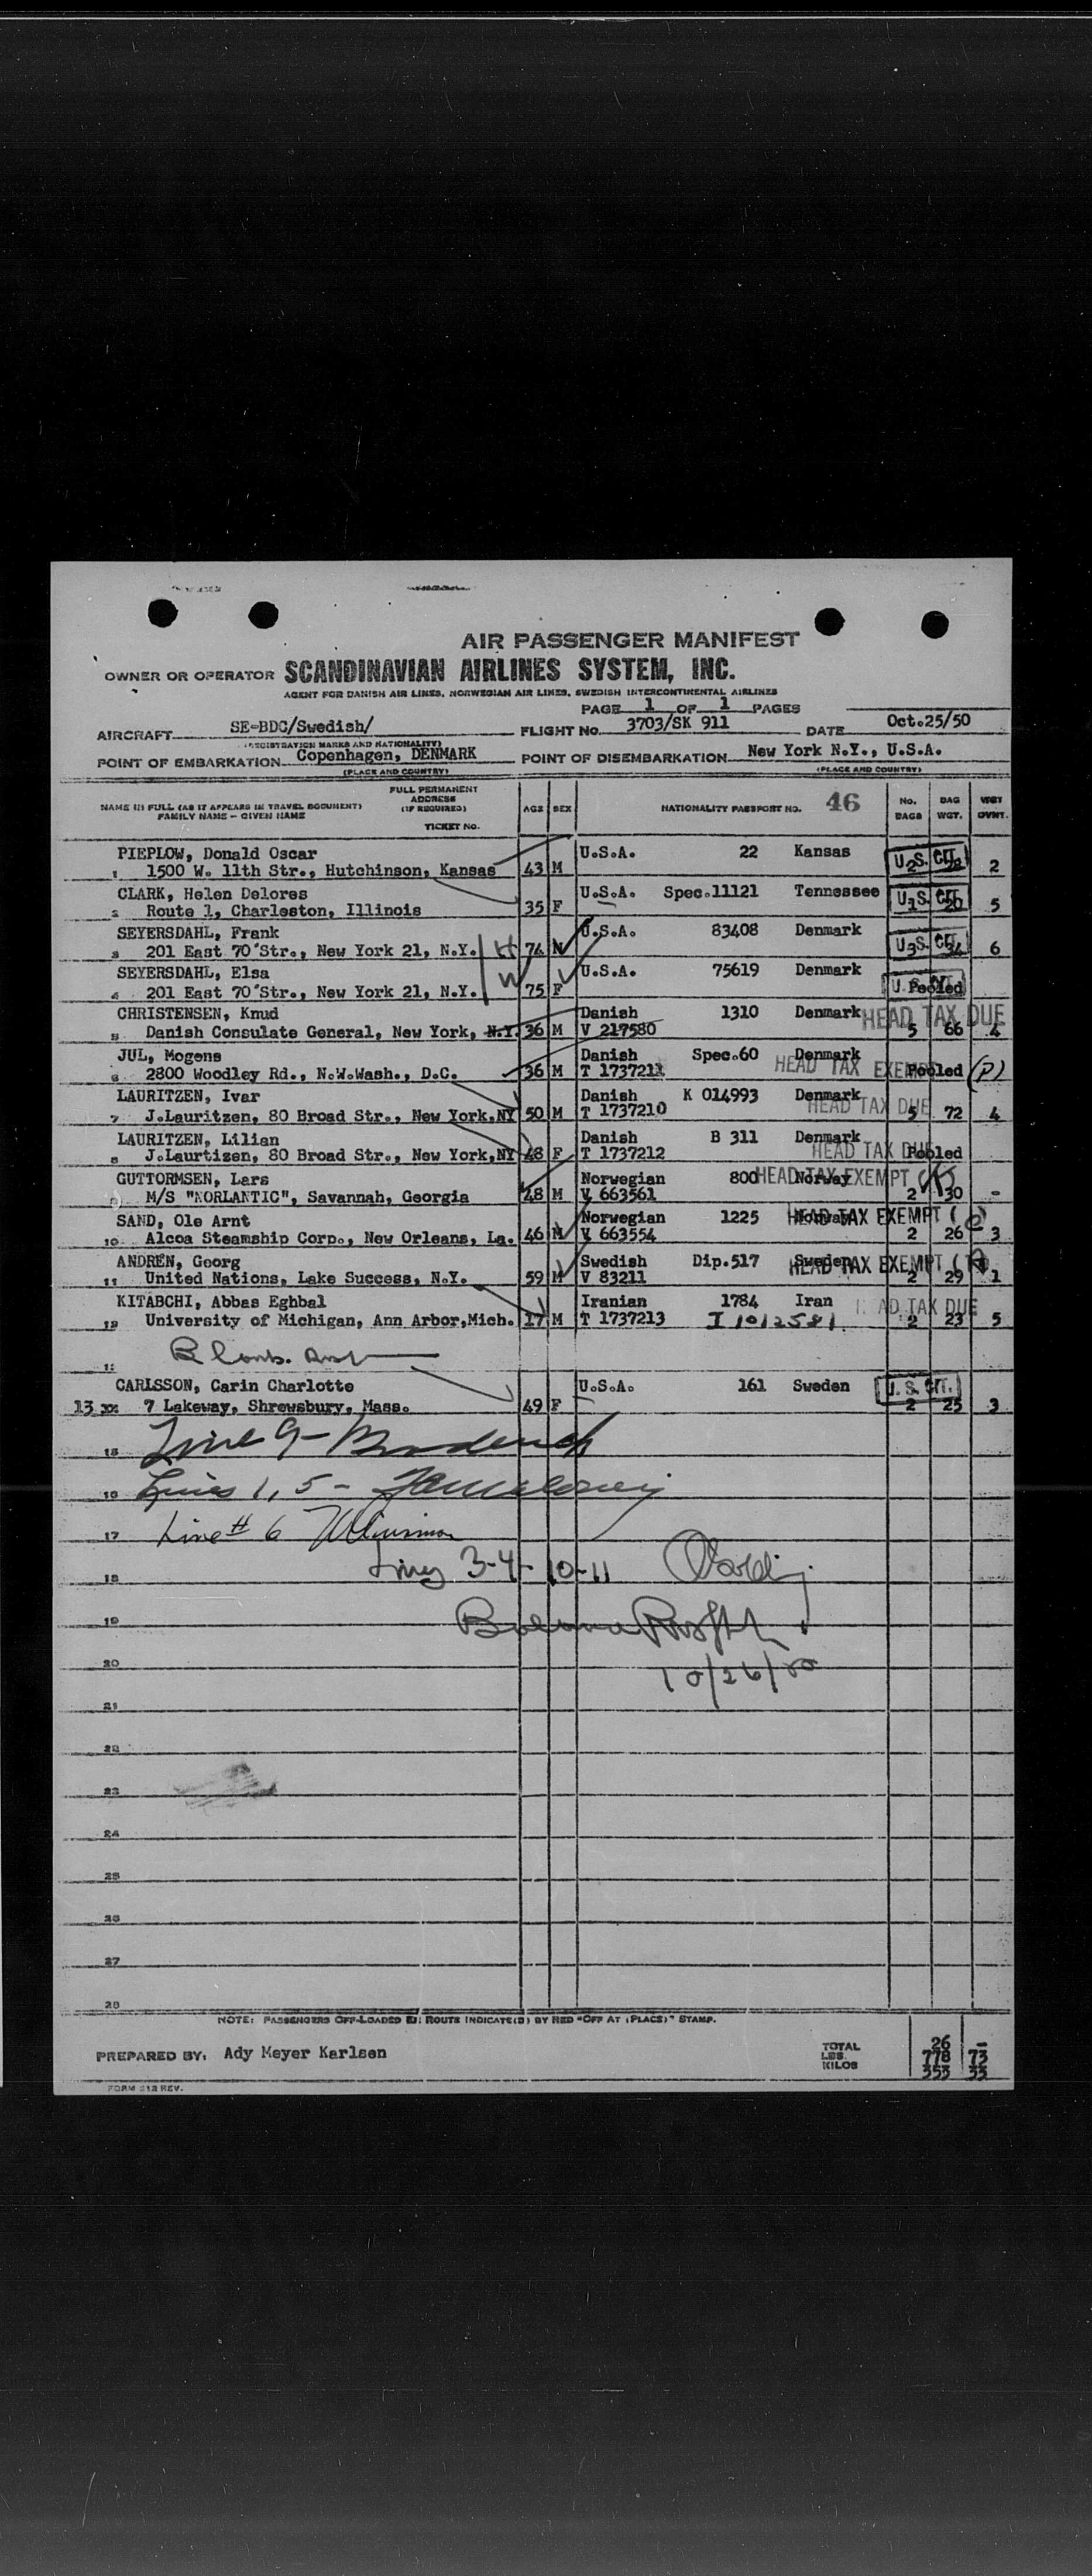 AIR PASSENGER MANIFEST
OWNER OR OPERATOR SCANDINAVIAN AIRLINES SYSTEM, INC.
AGENT FOR DANISH AIR LINES, NORWEGIAN AIR LINES, SWEDISH INTERCONTINENTAL AIRLINES
PAGE 1 OF 1 PAGES
AIRCRAFT SE-BDC/Swedish/ FLIGHT NO. 3703/SK 911 DATE Oct.25/50
(REGISTRATION MARKS AND NATIONALITY)
POINT OF EMBARKATION Copenhagen, DENMARK POINT OF DISEMBARKATION New York N.Y., U.S.A.
(PLACE AND COUNTRY) (PLACE AND COUNTRY)
NAME IN FULL (AS IT APPEARS IN TRAVEL DOCUMENT) FAMILY NAME - GIVEN NAME FULL PERMANENT ADDRESS (IF REQUIRED) TICKET NO. AGE SEX NATIONALITY PASSPORT NO. 46 NO. BAGS BAG WGT. WGT OVNT.
PIEPLOW, Donald Oscar U.S.A. 22 Kansas U.S. CIT.
1 1500 W. 11th Str., Hutchinson, Kansas 43 M 2 2
CLARK, Helen Delores U.S.A. Spec.11121 Tennessee U.S. CIT.
2 Route 1, Charleston, Illinois 35 F 1 20 5
SEYERSDAHL, Frank U.S.A. 83408 Denmark U.S. CIT.
3 201 East 70 Str., New York 21, N.Y. H 74 M 3 6
SEYERSDAHL, Elsa U.S.A. 75619 Denmark U.S. CIT.
4 201 East 70 Str., New York 21, N.Y. W 75 F Pooled
CHRISTENSEN, Knud Danish 1310 Denmark HEAD TAX DUE
5 Danish Consulate General, New York, N.Y. 36 M V 217580 5 66 4
JUL, Mogens Danish Spec.60 Denmark HEAD TAX EXEMPT
6 2800 Woodley Rd., N.W.Wash., D.C. 36 M T 1737211 Pooled (P)
LAURITZEN, Ivar Danish K 014993 Denmark HEAD TAX DUE
7 J.Lauritzen, 80 Broad Str., New York,NY 50 M T 1737210 5 72 4
LAURITZEN, Lilian Danish B 311 Denmark HEAD TAX DUE
8 J.Laurtizen, 80 Broad Str., New York,NY 48 F T 1737212 Pooled
GUTTORMSEN, Lars Norwegian 800 Norway HEAD TAX EXEMPT
9 M/S "NORLANTIC", Savannah, Georgia 28 M V 663561 2 30 -
SAND, Ole Arnt Norwegian 1225 Norway HEAD TAX EXEMPT (C)
10 Alcoa Steamship Corp., New Orleans, La. 46 M V 663554 2 26 3
ANDRÉN, Georg Swedish Dip.517 Sweden HEAD TAX EXEMPT (A)
11 United Nations, Lake Success, N.Y. 59 M V 83211 2 29 1
KITABCHI, Abbas Eghbal Iranian 1784 Iran HEAD TAX DUE
12 University of Michigan, Ann Arbor,Mich. 17 M T 1737213 I 1012581 2 23 5
CARLSSON, Carin Charlotte U.S.A. 161 Sweden U.S. CIT.
13 7 Lakeway, Shrewsbury, Mass. 49 F 2 25 3
15 Line 9 -
16 Lines 1, 5 -
17 Line # 6
18 Lines 3-4-10-11
19
20 10/26/50
21
22
23
24
25
26
27
28
NOTE: PASSENGERS OFF-LOADED EN ROUTE INDICATE(D) BY RED "OFF AT (PLACE)" STAMP.
PREPARED BY: Ady Meyer Karlsen
TOTAL 26 -
LBS. 778 73
KILOS 353 33
FORM 512 REV.